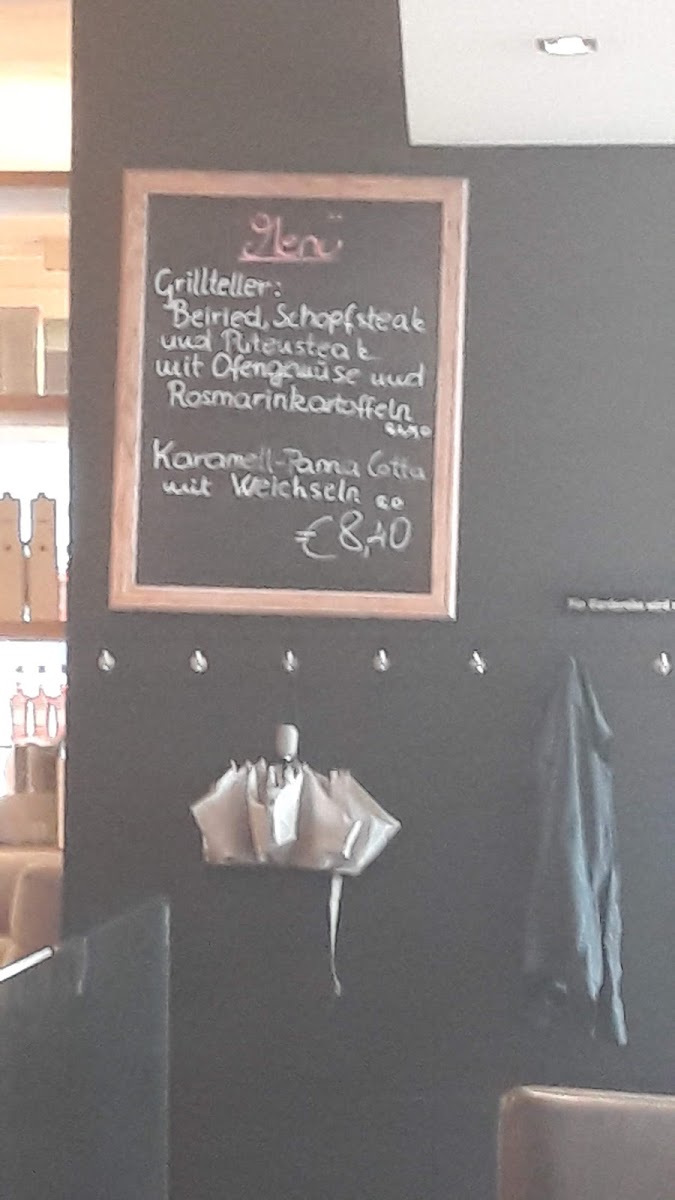 Menü
Grillteller:
Beiried, Schopfsteak
und Putensteak
mit Ofengemüse und
Rosmarinkartoffeln
Karamell-Panna Cotta
mit Weichseln
€8,40